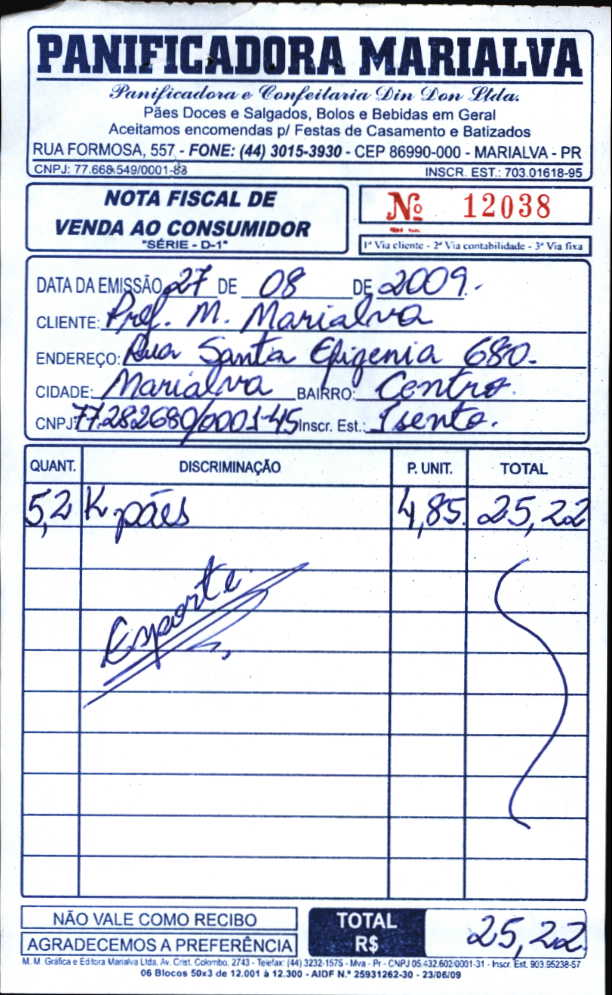 PANIFICADORA MARIALVA
Panificadora e Confeitaria Din Don Ltda.
Pães Doces e Salgados, Bolos e Bebidas em Geral
Aceitamos encomendas p/ Festas de Casamento e Batizados
RUA FORMOSA, 557 - FONE: (44) 3015-3930 - CEP 86990-000 - MARIALVA - PR
CNPJ: 77.668.549/0001-83 INSCR. EST.: 703.01618-95
NOTA FISCAL DE
VENDA AO CONSUMIDOR
"SÉRIE - D-1"
Nº 12038
1ª Via cliente - 2ª Via contabilidade - 3ª Via fixa
DATA DA EMISSÃO 27 DE 08 DE 2009.
CLIENTE: Pref. M. Marialva
ENDEREÇO: Rua Santa Efigenia 680.
CIDADE: Marialva BAIRRO: Centro.
CNPJ 77.282680/0001-45 Inscr. Est.: Isento.
QUANT. DISCRIMINAÇÃO P. UNIT. TOTAL
5,2 K pães 4,85 25,22
Esporte
NÃO VALE COMO RECIBO
AGRADECEMOS A PREFERÊNCIA
TOTAL R$ 25,22
M. M. Gráfica e Editora Marialva Ltda. Av. Crist. Colombo, 2743 - Telefax: (44) 3232-1575 - Mva - Pr - CNPJ 05.432.602/0001-31 - Inscr. Est. 903.95238-57
06 Blocos 50x3 de 12.001 à 12.300 - AIDF N.º 25931262-30 - 23/06/09